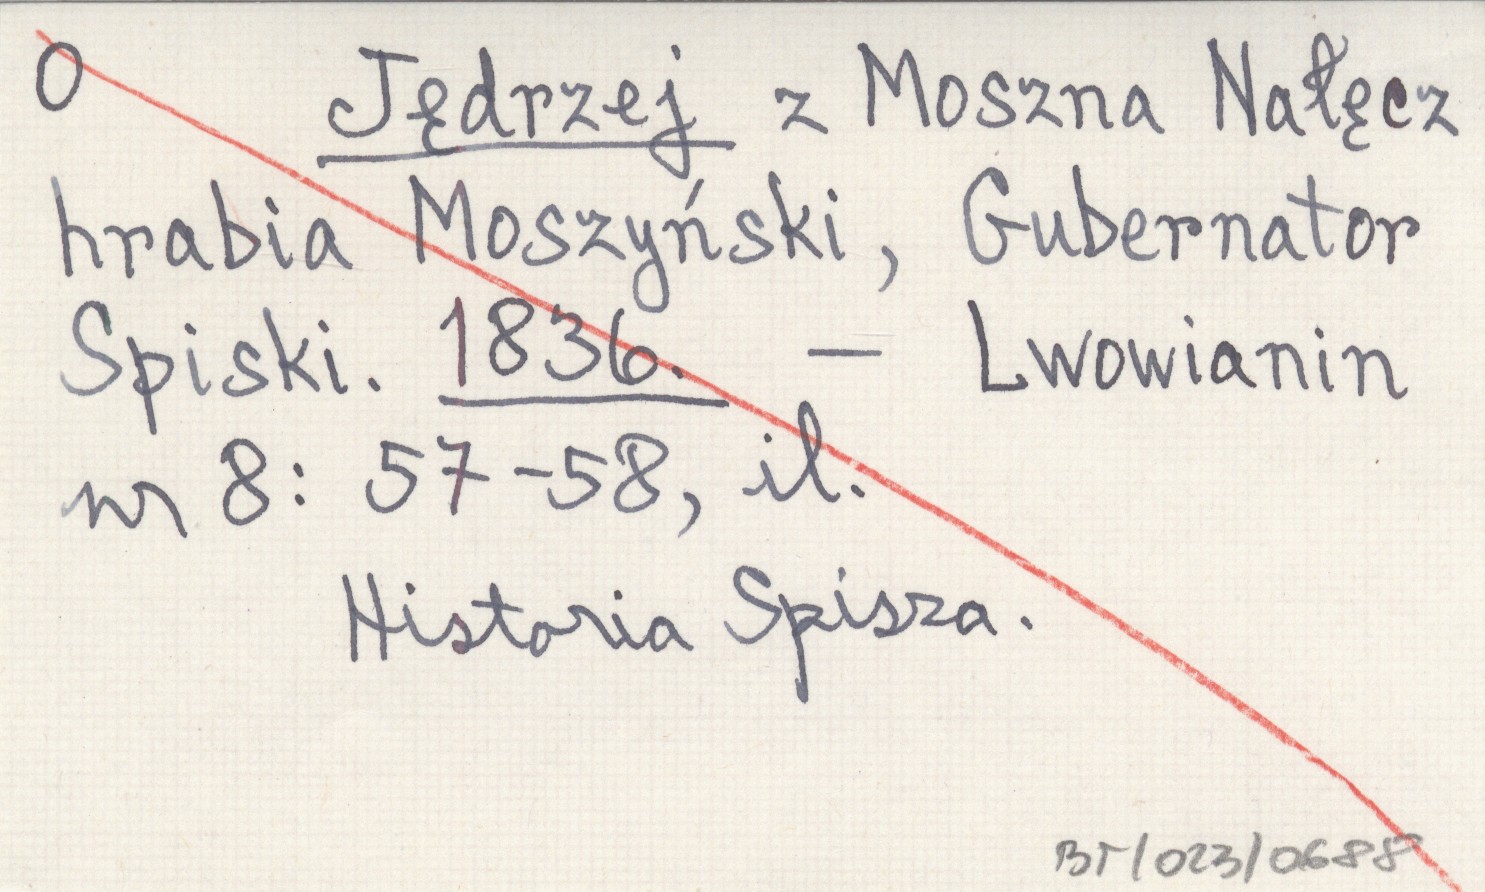 O Jędrzej z Moszna Nałęcz
hrabia Moszyński, Gubernator
Spiski. 1836. — Lwowianin
nr 8: 57-58, il.
Historia Spisza.
BT/023/0688